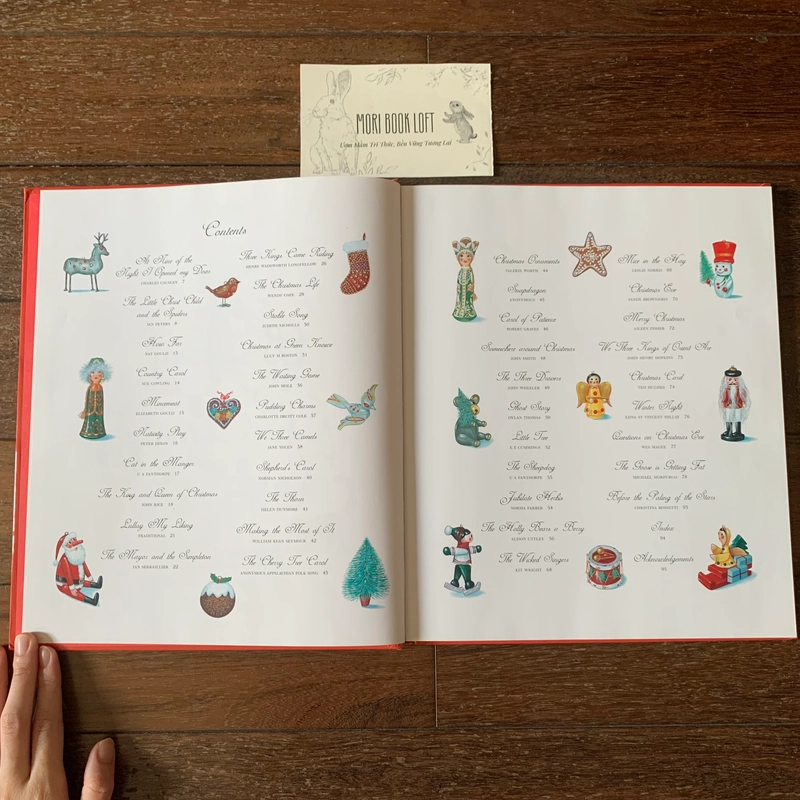 MORI BOOK LOFT
Ươm Mầm Tri Thức, Bền Vững Tương Lai
Contents
At Nine of the
Night I Opened my Door
CHARLES CAUSLEY 7
The Little Christ Child
and the Spiders
JAN PETERS 8
How Far
NAT GOULD 13
Country Carol
SUE COWLING 14
Moment
ELIZABETH GOULD 15
Nativity Play
PETER DIXON 16
Cat in the Manger
U A FANTHORPE 17
The King and Queen of Christmas
JOHN RICE 18
Lullay My Liking
TRADITIONAL 21
The Mayor and the Simpleton
IAN SERRAILLIER 22
Three Kings Came Riding
HENRY WADSWORTH LONGFELLOW 26
The Christmas Life
WENDY COPE 29
Stable Song
JUDITH NICHOLLS 30
Christmas at Green Knowe
LUCY M BOSTON 31
The Waiting Game
JOHN MOLE 36
Pudding Charms
CHARLOTTE DRUITT COLE 37
We Three Camels
JANE YOLEN 38
Shepherd's Carol
NORMAN NICHOLSON 40
The Thorn
HELEN DUNMORE 41
Making the Most of It
WILLIAM KEAN SEYMOUR 42
The Cherry Tree Carol
ANONYMOUS APPALACHIAN FOLK SONG 43
Christmas Ornaments
VALERIE WORTH 44
Snapdragon
ANONYMOUS 45
Carol of Patience
ROBERT GRAVES 46
Somewhere around Christmas
JOHN SMITH 48
The Three Drovers
JOHN WHEELER 49
Ghost Story
DYLAN THOMAS 50
Little Tree
E E CUMMINGS 52
The Sheepdog
U A FANTHORPE 53
Jubilate Herbis
NORMA FARBER 54
The Holly Bears a Berry
ALISON UTTLEY 56
The Wicked Singers
KIT WRIGHT 68
Mice in the Hay
LESLIE NORRIS
Christmas Eve
Merry Christmas
AILEEN FISHER 72
We Three Kings of Orient Are
JOHN HENRY HOPKINS 73
Christmas Card
TED HUGHES 74
Winter Night
76
Questions on Christmas Eve
WES MAGEE 77
The Goose is Getting Fat
MICHAEL MORPURGO 78
Before the Paling of the Stars
CHRISTINA ROSSETTI 93
Index
94
Acknowledgements
95